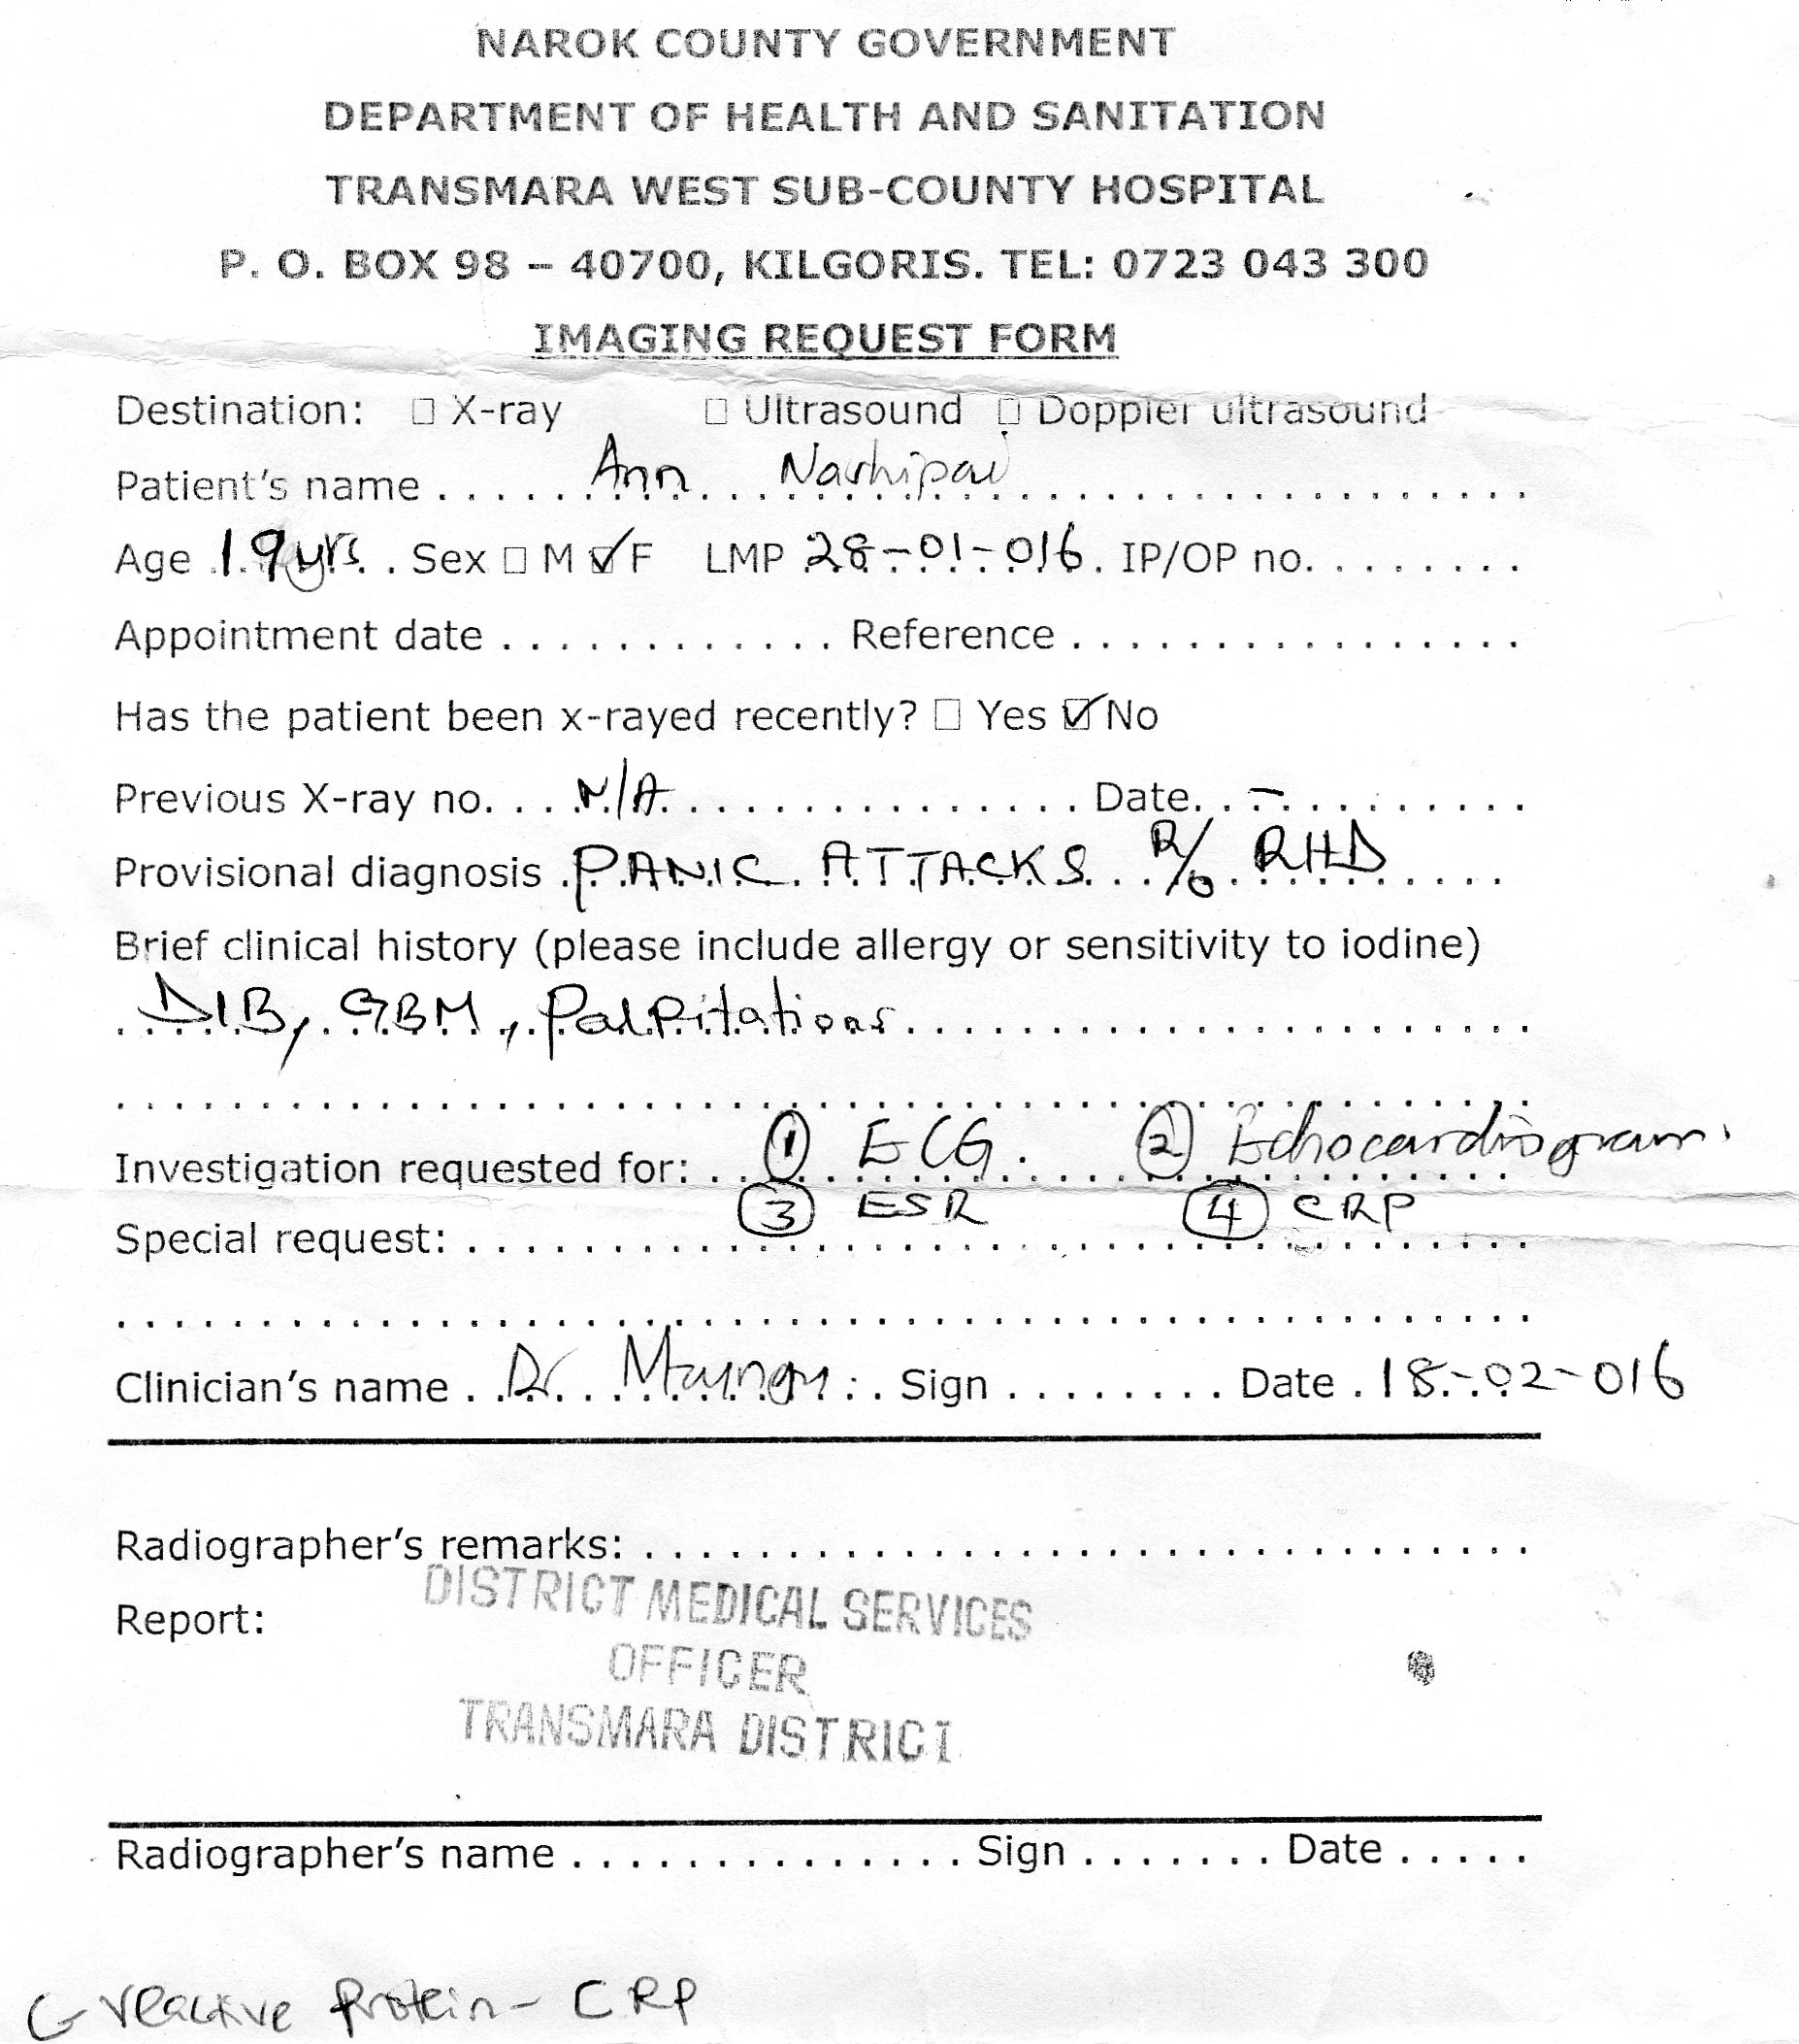 NAROK COUNTY GOVERNMENT
DEPARTMENT OF HEALTH AND SANITATION
TRANSMARA WEST SUB-COUNTY HOSPITAL
P. O. BOX 98 – 40700, KILGORIS. TEL: 0723 043 300
IMAGING REQUEST FORM
Destination: □ X-ray □ Ultrasound □ Doppler ultrasound
Patient's name . . . . . Ann . . . . . . . . . .
Age 19yrs . . Sex □ M ☑ F LMP 28-01-016 . IP/OP no. . . . . . . .
Appointment date . . . . . . . . . . . . Reference . . . . . . . . . . . . . . . .
Has the patient been x-rayed recently? □ Yes ☑ No
Previous X-ray no. . . . N/A . . . . . . . . . . . . . . . Date. . . – . . . . . . . . .
Provisional diagnosis . PANIC ATTACKS R/o RHD
Brief clinical history (please include allergy or sensitivity to iodine)
DIB, GBM, Palpitations . . . . . . . . . . . . . . . . . . . . . .
Investigation requested for: . . ① ECG. ② Echocardiogram.
③ ESR ④ CRP
Special request: . . . . . . . . . . . . . . . . . . . . . . . . . . . . . . . . . . . . .
Clinician's name . . Dr. . . . . . . . Sign . . . . . . . . Date . 18-02-016
Radiographer's remarks: . . . . . . . . . . . . . . . . . . . . . . . . . . . . . . .
Report:
DISTRICT MEDICAL SERVICES
OFFICER
TRANSMARA DISTRICT
Radiographer's name . . . . . . . . . . . . . . Sign . . . . . . . Date . . . . .
C-reactive protein - CRP